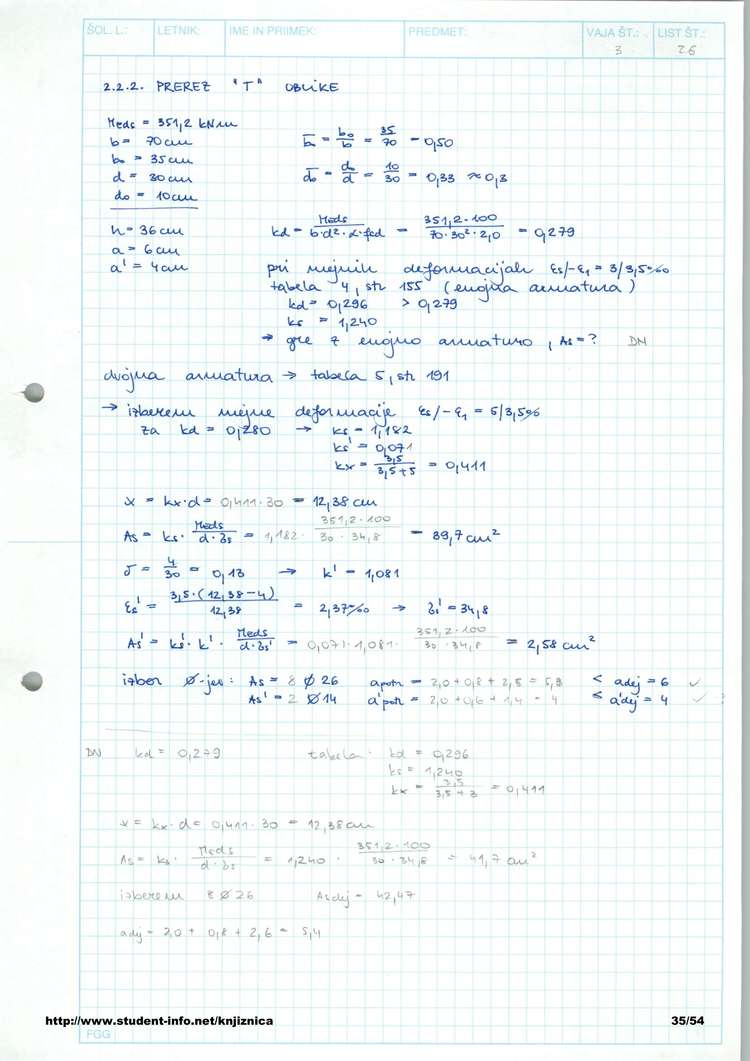 ŠOL. L.: LETNIK: IME IN PRIIMEK: PREDMET: VAJA ŠT.: 3 LIST ŠT.: 26
2.2.2. PREREZ "T" OBLIKE
Meds = 351,2 kNm
b = 70 cm
b̄o = bo/b = 35/70 = 0,50
bo = 35 cm
d = 30 cm
d̄o = do/d = 10/30 = 0,33 ≈ 0,3
do = 10 cm
h = 36 cm
kd = Meds/b·d²·α·fcd = 351,2·100/70·30²·2,0 = 0,279
a = 6 cm
a' = 4 cm
pri mejnih deformacijah εs/-ε1 = 3/3,5‰
tabela 4, str 155 (enojna armatura)
kd = 0,296 > 0,279
ks = 1,240
→ gre z enojno armaturo, As = ? DN
dvojna armatura → tabela 5, str 191
→ izberem mejne deformacije εs/-ε1 = 5/3,5‰
za kd = 0,280 → ks = 1,182
ks' = 0,071
kx = 3,5/3,5+5 = 0,411
x = kx·d = 0,411·30 = 12,38 cm
As = ks· Meds/d·σs = 1,182· 351,2·100/30·34,8 = 39,7 cm²
δ = 4/30 = 0,13 → k' = 1,081
εs' = 3,5·(12,38-4)/12,38 = 2,37‰ → σs' = 34,8
As' = ks'·k'· Meds/d·σs' = 0,071·1,081· 351,2·100/30·34,8 = 2,58 cm²
izber Ø-jev: As = 8 Ø 26 apotr = 2,0 + 0,8 + 2,5 = 5,3 < adej = 6 ✓
As' = 2 Ø 14 a'potr = 2,0 + 0,6 + 1,4 = 4 ≤ a'dej = 4 ✓
DN kd = 0,279 tabela· kd = 0,296
ks = 1,240
kx = 3,5/3,5+3 = 0,411
x = kx·d = 0,411·30 = 12,38 cm
As = ks· Meds/d·σs = 1,240 · 351,2·100/30·34,8 = 41,7 cm²
izberem 8 Ø 26 Asdej = 42,47
adej = 2,0 + 0,8 + 2,6 = 5,4
http://www.student-info.net/knjiznica 35/54
FGG